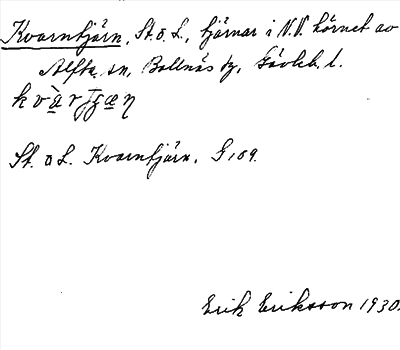 Kvarntjärn, St. o. L., tjärnar i N.V. hörnet av
Alfta sn, Bollnäs tg, Gävleb. l.
St. o L. Kvarntjärn. G 109.
Erik Eriksson 1930.